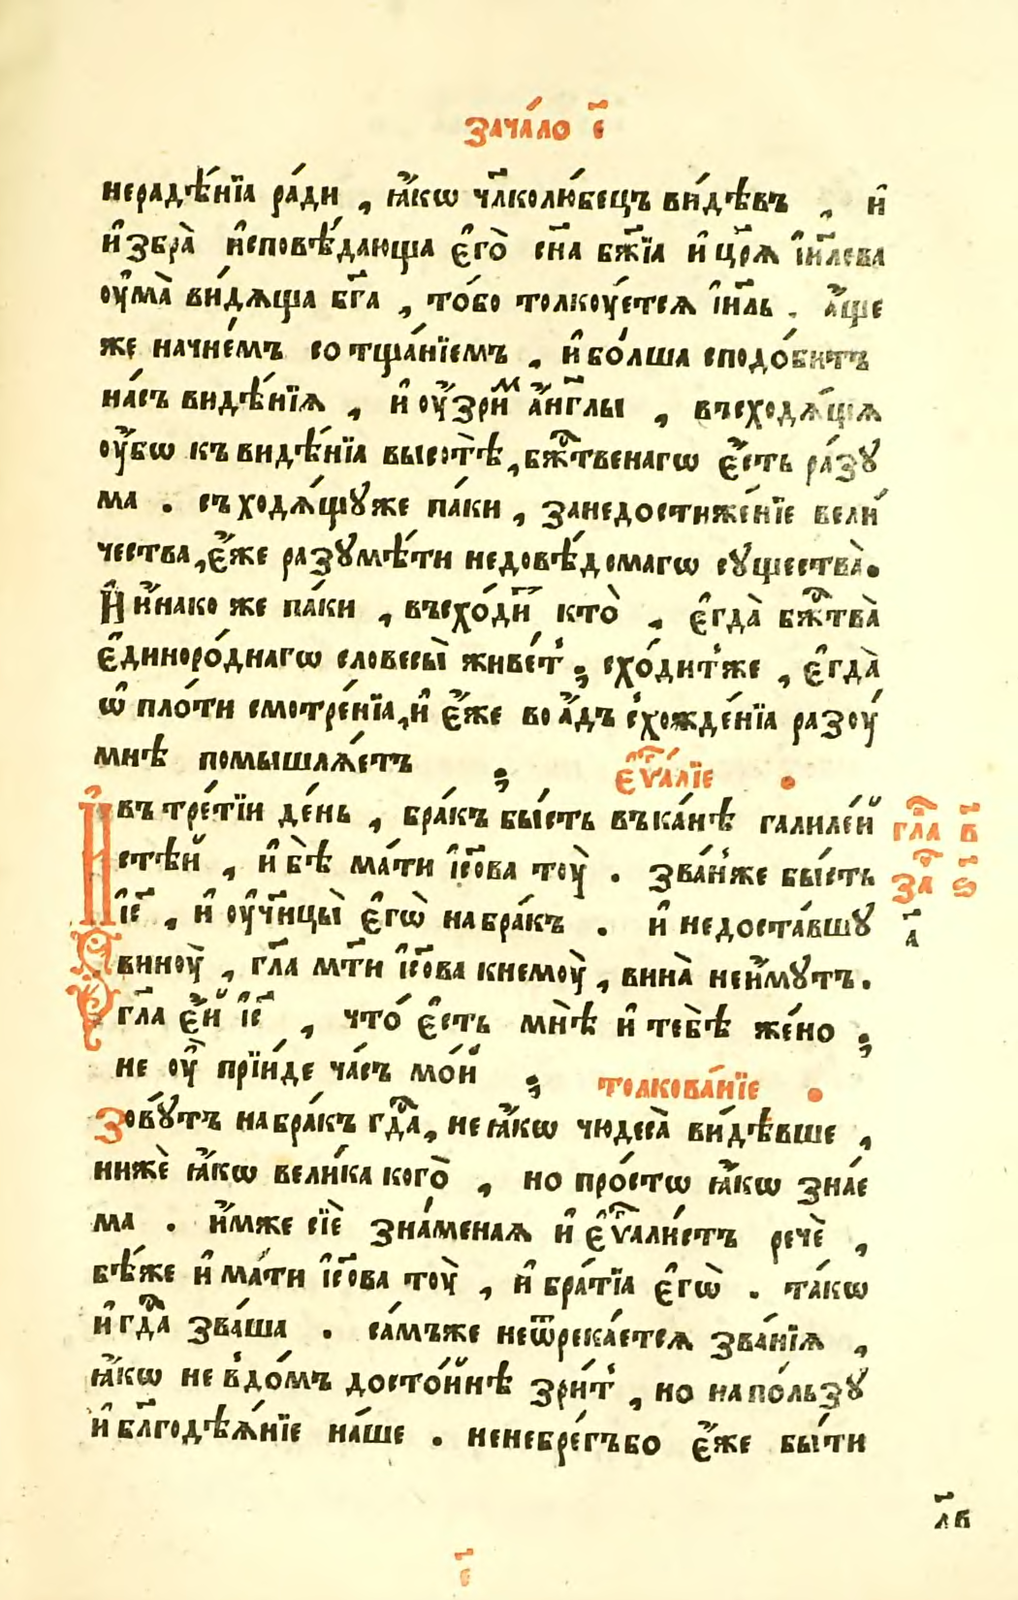 зача́ло є҃
нерадѣ́нїа ра́ди , ꙗ҆́кѡ чл҃колю́бецъ ви́дѣвъ , и҆
и҆збра̀ и҆сповѣ́дающа є҆го̀ сн҃а бж҃їа и҆ цр҃ѧ і҆и҃лева
ᲂу҆ма̀ ви́дѧща бг҃а , то́бо толкᲂу́етсѧ і҆и҃ль . а҆́ще
же начне́мъ со тща́нїемъ , и҆ бо́лша сподо́битъ
на́съ видѣ́нїѧ , и҆ ᲂу҆́зриⷨ а҆́нг҃лы , въсходѧ́щїѧ
ᲂу҆́бѡ къ видѣ́нїа высотѣ̀ , бж҃твенагѡ є҆́сть ра́зꙋ
ма . съ ходѧ́щꙋже па́ки , занедостиже́нїе вели́
чества , є҆́же разꙋмѣ́ти недовѣ́домагѡ сꙋщества̀ .
И҆ и҆́нако же па́ки , въсхо́ди́ кто̀ , є҆гда̀ бж҃тва̀
є҆диноро́днагѡ словесы̀ живе́т̾ ; схо́дит̾же , є҆гда̀
ѡ҆ пло́ти смотре́нїа , и҆ є҆́же во а҆́дъ схожде́нїа разᲂу́
мнѣ помышлѧ́етъ ; є҆ѵⷢ҇а́лїе .
И҆въ тре́тїи де́нь , бра́къ бы́сть въка́нѣ галиле́й
стѣ́й , и҆ бѣ̀ ма́ти і҆с҃ова тᲂу̀ . зва́н̾же бы́сть
і҆с҃ , и҆ ᲂу҆чн҃цы̀ є҆гѡ̀ на бра́къ . и҆ недоста́вшꙋ
винᲂу̀ , гл҃а мт҃и і҆с҃ова кнемᲂу̀ , вина̀ неи҆́мꙋтъ .
гл҃а є҆́й і҆с҃ , что́ є҆сть мнѣ̀ и҆ тебѣ̀ же́но ;
не ᲂу҆̀ прїи́де ча́съ мо́й ; толкова́нїе .
Зовꙋ́тъ на бра́къ гдⷭ҇а , не ꙗ҆́кѡ чюдеса̀ ви́дѣвше ,
нижѐ ꙗ҆́кѡ вели́ка кого̀ , но про́стѡ ꙗ҆́кѡ зна́е
ма . и҆́мже сїѐ зна́менаѧ и҆ є҆ѵⷢ҇али́стъ речѐ ,
бѣ́же и҆ ма́ти і҆с҃ова тᲂу̀ , и҆ бра́тїа є҆гѡ̀ . та́кѡ
и҆ гдⷭ҇а зва́ша . са́мъже неѿрека́етсѧ зва́нїѧ ,
ꙗ҆́кѡ не в̾до́мъ досто́йнѣ зри́т̾ , но на по́льзꙋ
и҆ бл҃годѣѧ́нїе на́ше . ненебре́гъбо є҆́же бы́ти
гл҃а в҃
за҃ ѕ҃
а҃
л҃в
є҃